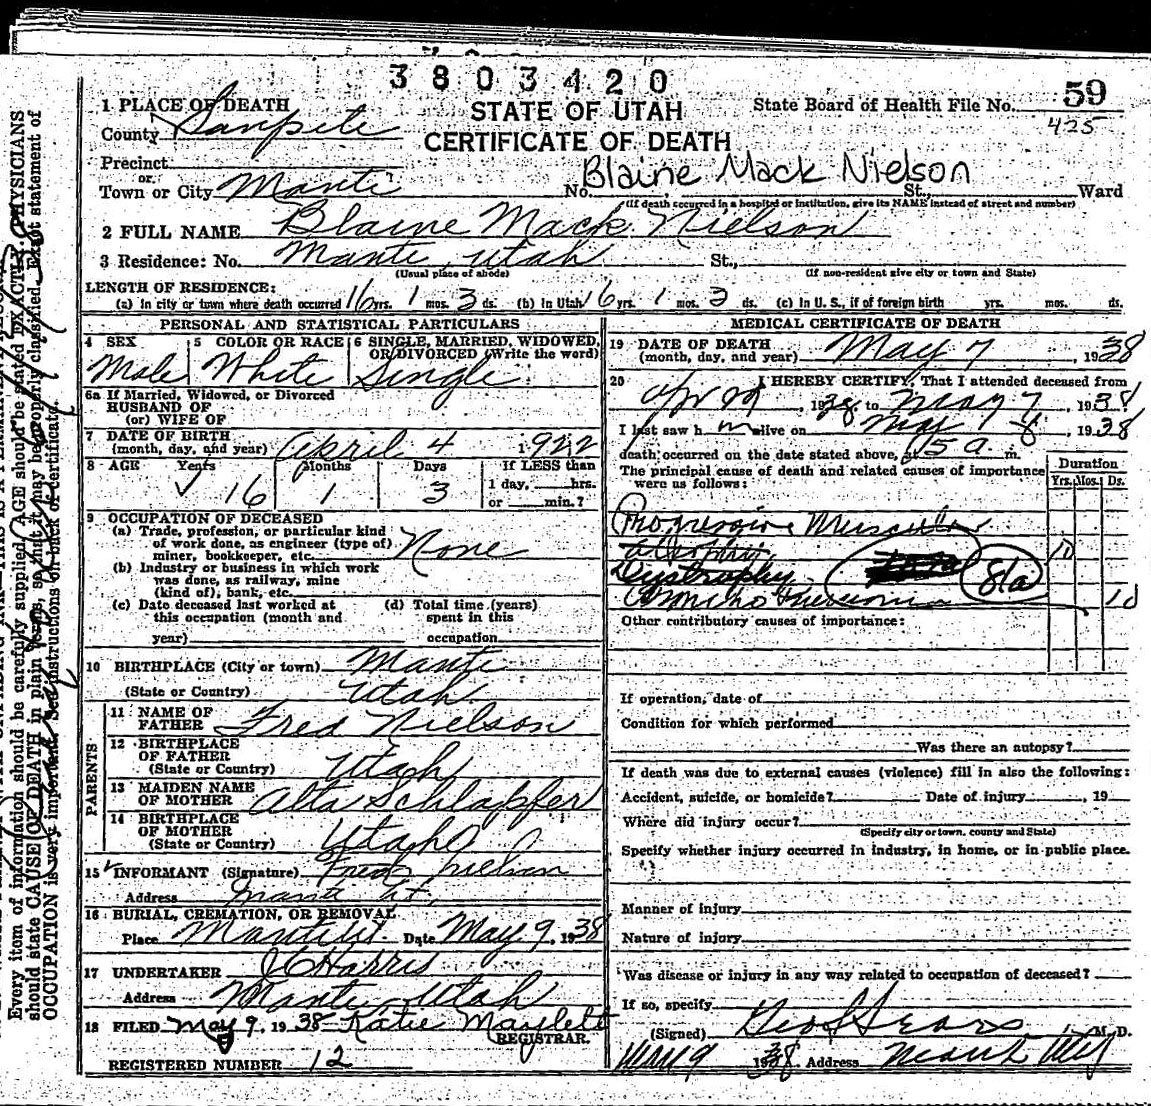 3803420
1 PLACE OF DEATH
STATE OF UTAH
State Board of Health File No. 59
County Sanpete
425
CERTIFICATE OF DEATH
Precinct
or
Blaine Mack Nielson
Town or City Manti No. St., Ward
(If death occurred in a hospital or institution, give its NAME instead of street and number)
2 FULL NAME Blaine Mack Nielson
3 Residence: No. Manti, Utah St.,
(Usual place of abode) (If non-resident give city or town and State)
LENGTH OF RESIDENCE:
(a) In city or town where death occurred 16 yrs. 1 mos. 3 ds. (b) In Utah 16 yrs. 1 mos. 3 ds. (c) In U. S., if of foreign birth yrs. mos. ds.
PERSONAL AND STATISTICAL PARTICULARS
4 SEX 5 COLOR OR RACE 6 SINGLE, MARRIED, WIDOWED,
OR DIVORCED (Write the word)
Male White Single
6a If Married, Widowed, or Divorced
HUSBAND OF
(or) WIFE OF
7 DATE OF BIRTH
(month, day, and year) April 4 1922
8 AGE Years Months Days If LESS than
1 day, hrs.
or min.?
16 1 3
9 OCCUPATION OF DECEASED
(a) Trade, profession, or particular kind
of work done, as engineer (type of)
miner, bookkeeper, etc. None
(b) Industry or business in which work
was done, as railway, mine
(kind of), bank, etc.
(c) Date deceased last worked at (d) Total time (years)
this occupation (month and spent in this
year) occupation
10 BIRTHPLACE (City or town) Manti
(State or Country) Utah
PARENTS
11 NAME OF
FATHER Fred Nielson
12 BIRTHPLACE
OF FATHER
(State or Country) Utah
13 MAIDEN NAME
OF MOTHER Alta Schlappfer
14 BIRTHPLACE
OF MOTHER
(State or Country) Utah
15 INFORMANT (Signature) Fred Nielson
Address Manti Ut.
16 BURIAL, CREMATION, OR REMOVAL
Place Manti Ut. Date May 9, 1938
17 UNDERTAKER J C Harris
Address Manti, Utah
18 FILED May 9, 1938 Katie
REGISTRAR.
REGISTERED NUMBER 12
MEDICAL CERTIFICATE OF DEATH
19 DATE OF DEATH
(month, day, and year) May 7, 1938
20 I HEREBY CERTIFY, That I attended deceased from
, 1938, to May 7, 1938
I last saw h m alive on May, 1938
death occurred on the date stated above, at a. m.
The principal cause of death and related causes of importance
were as follows:
Duration
Yrs. Mos. Ds.
Progressive Muscular
10
Dystrophy 81a
10
Other contributory causes of importance:
If operation, date of
Condition for which performed
Was there an autopsy?
If death was due to external causes (violence) fill in also the following:
Accident, suicide, or homicide? Date of injury , 19
Where did injury occur?
(Specify city or town, county and State)
Specify whether injury occurred in industry, in home, or in public place.
Manner of injury
Nature of injury
Was disease or injury in any way related to occupation of deceased?
If so, specify
(Signed) Geo L Sears M. D.
May 9 1938. Address Manti
Every item of information should be carefully supplied. AGE should be stated EXACTLY. PHYSICIANS
should state CAUSE OF DEATH in plain terms, so that it may be properly classified. Exact statement of
OCCUPATION is very important. See instructions on back of certificate.